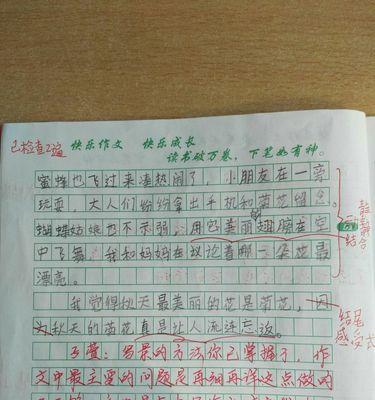 已检查2遍
快乐作文 快乐成长
读书破万卷，下笔如有神。
蜜蜂也飞过来凑热闹了，小朋友在一旁
玩耍，大人们纷纷拿出手机和菊花留念。
蝴蝶姑娘也不示弱，用它美丽翅膀在空
中飞舞。我和妈妈在议论着哪一朵花最
漂亮。
我觉得秋天最美丽的花是菊花，因
为秋天的菊花真是让人流连忘返。
写景的方法你已掌握了，作
文中最主要的问题是再细再详这点做的
结尾
感受式